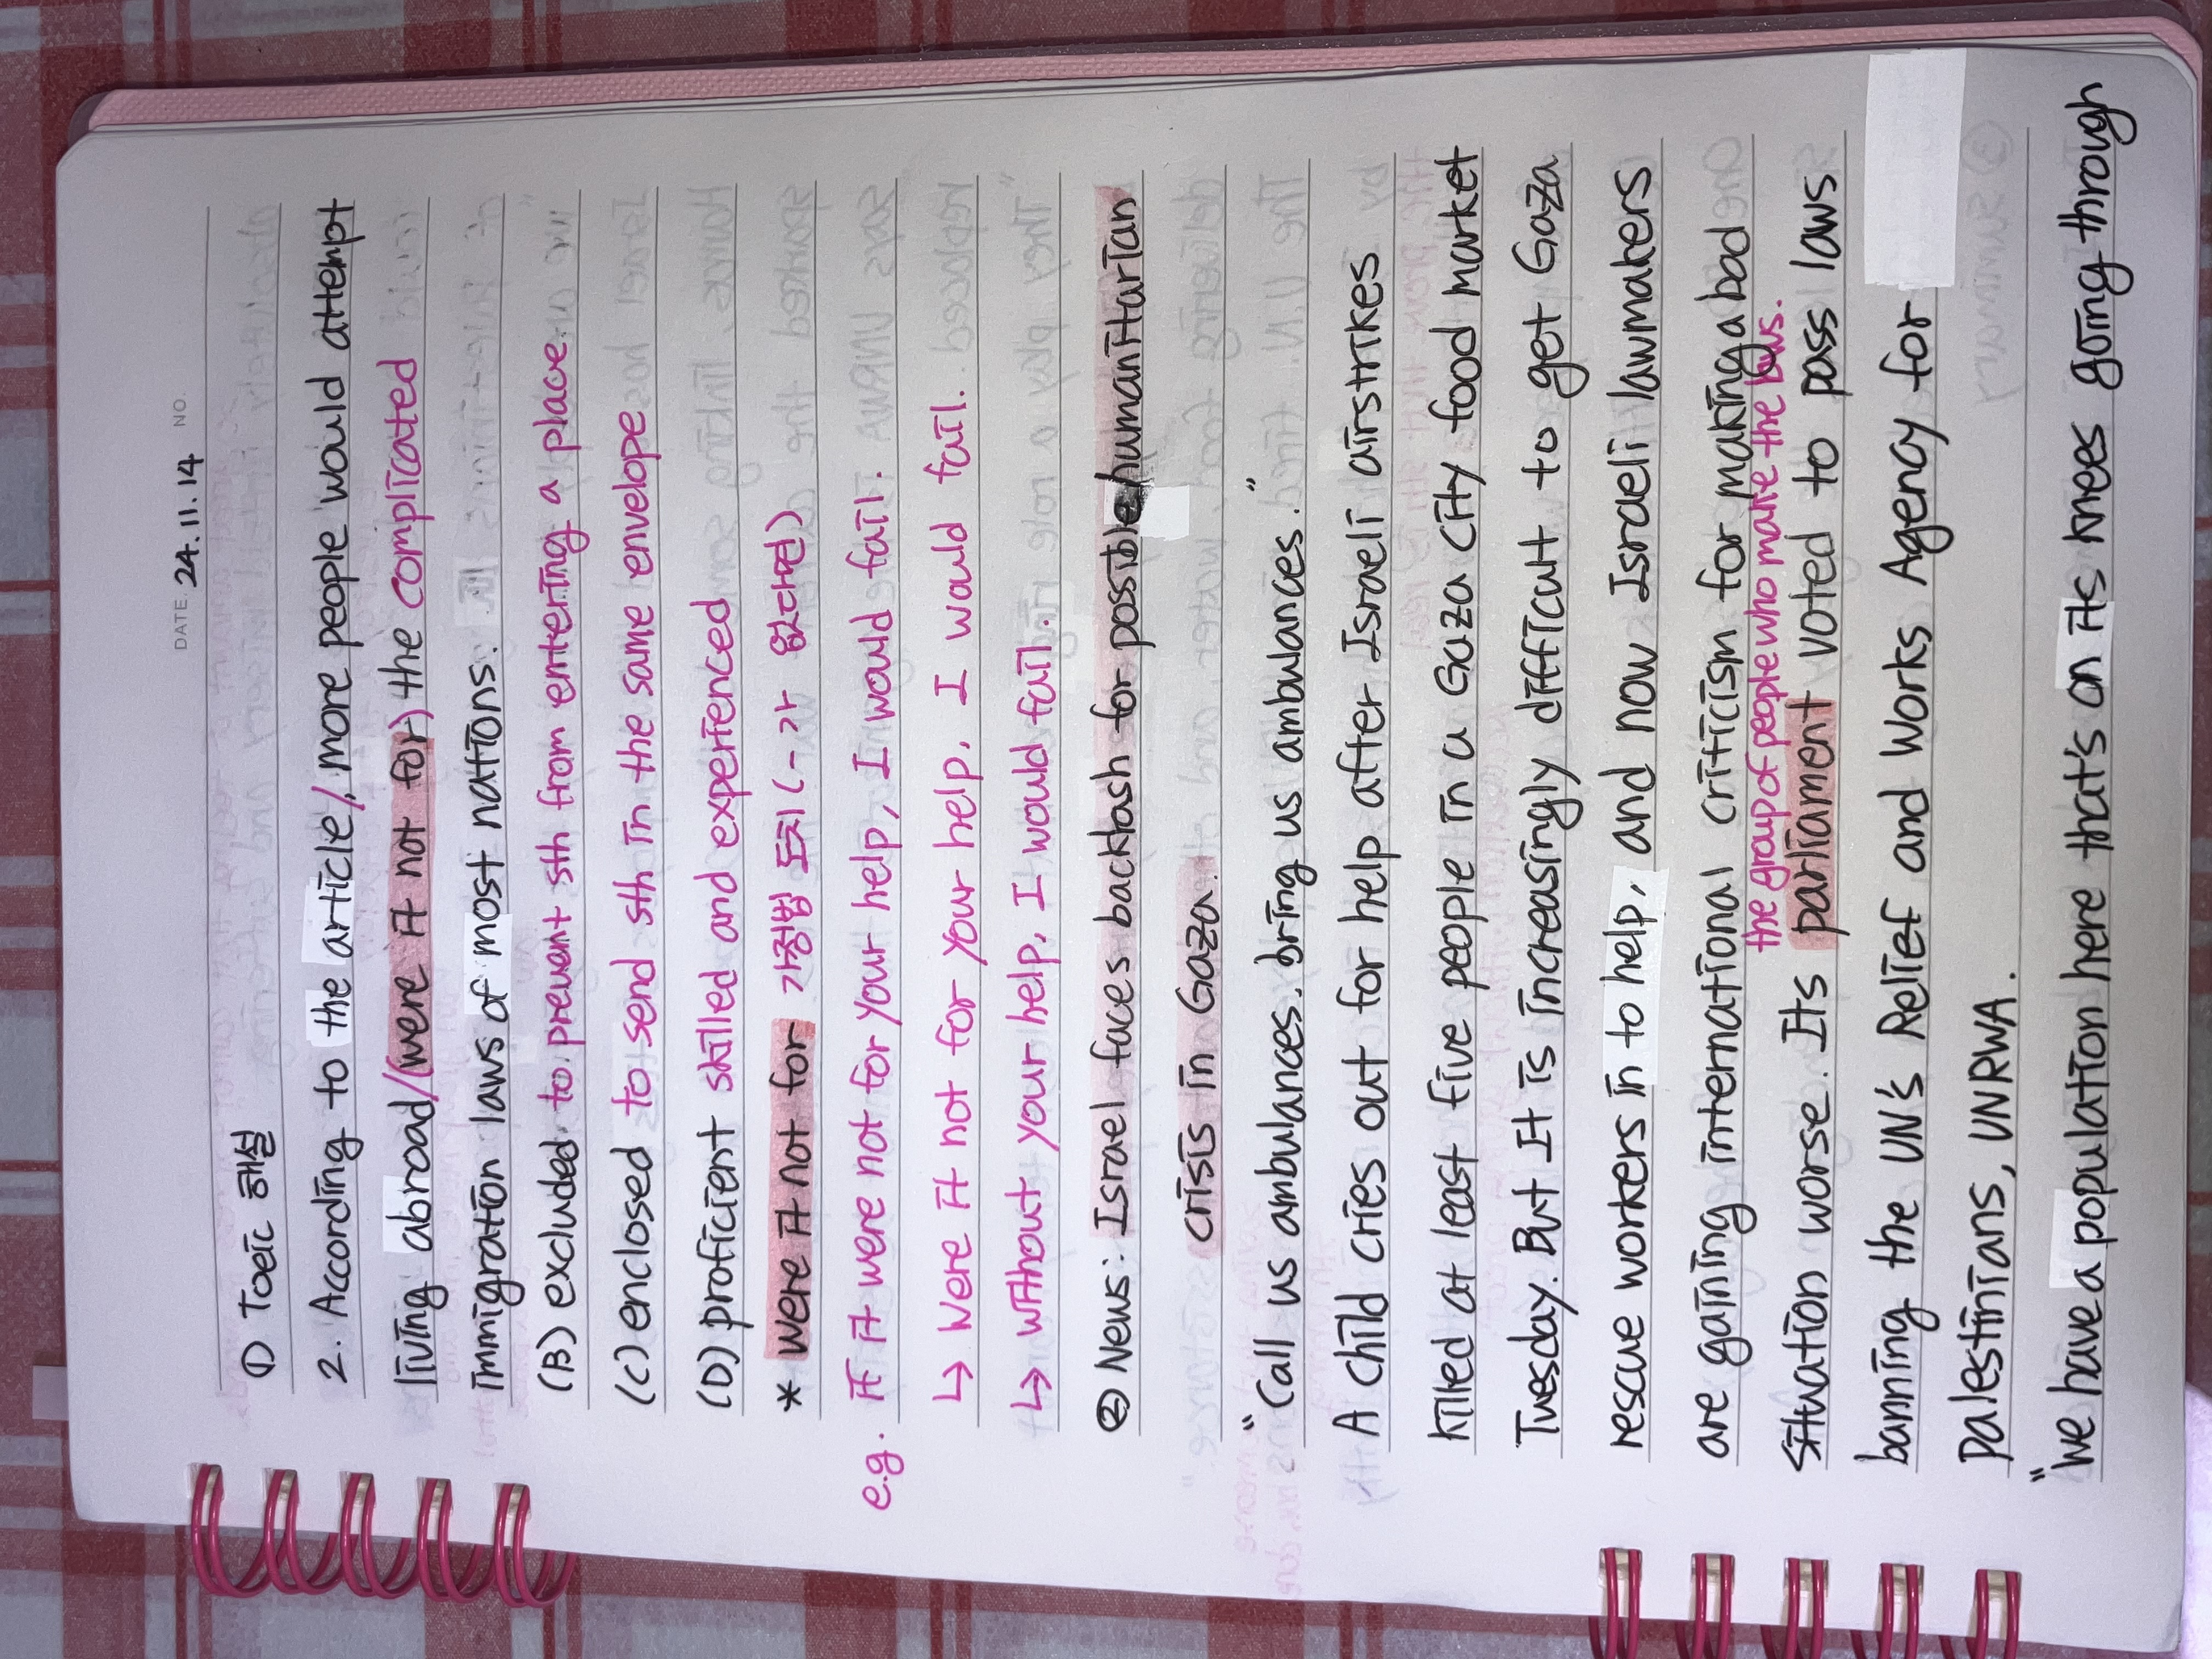 DATE. 24. 11. 14 NO.
① Toeic 해설
2. According to the article/, more people would attempt
living abroad/(were it not for) the complicated
immigration laws of most nations.
(B) excluded to prevent sth from entering a place.
(C) enclosed to send sth in the same envelope
(D) proficient skilled and experienced
* were it not for 가정법 도치 (~가 없다면)
e.g. If it were not for your help, I would fail.
↳ Were it not for your help, I would fail.
↳ Without your help, I would fail.
② News: Israel faces backlash for possible humanitarian
crisis in Gaza.
"Call us ambulances. bring us ambulances."
A child cries out for help after Israeli airstrikes
killed at least five people in a Gaza City food market
Tuesday. But it is increasingly difficult to get Gaza
rescue workers in to help, and now Israeli lawmakers
are gaining international criticism for making a bad
the group of people who make the laws.
situation worse. Its parliament voted to pass laws
banning the UN's Relief and Works Agency for
Palestinians, UNRWA.
"We have a population here that's on its knees going through